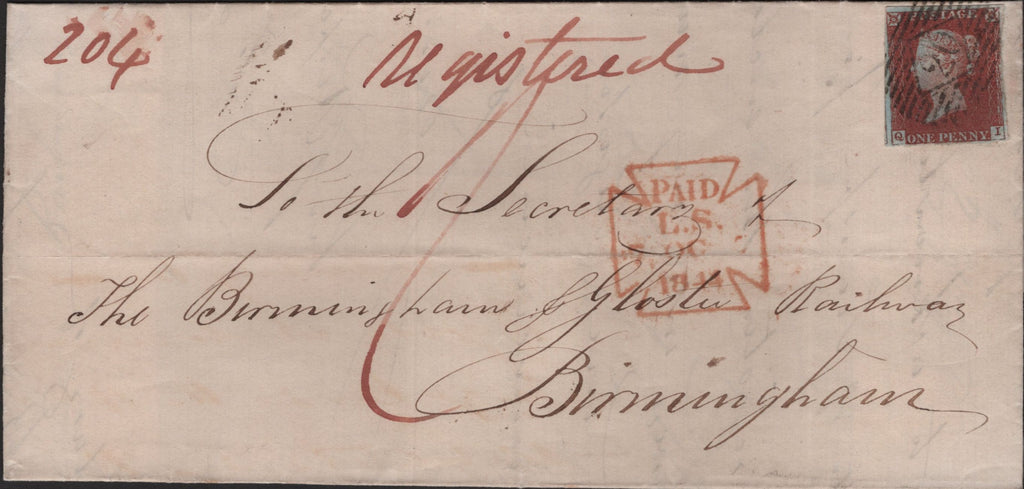 204 Registered
POSTAGE
Q I
ONE PENNY
To the Secretary of
PAID
L.S.
OC
1844
The Birmingham & Gloster Railway
Birmingham